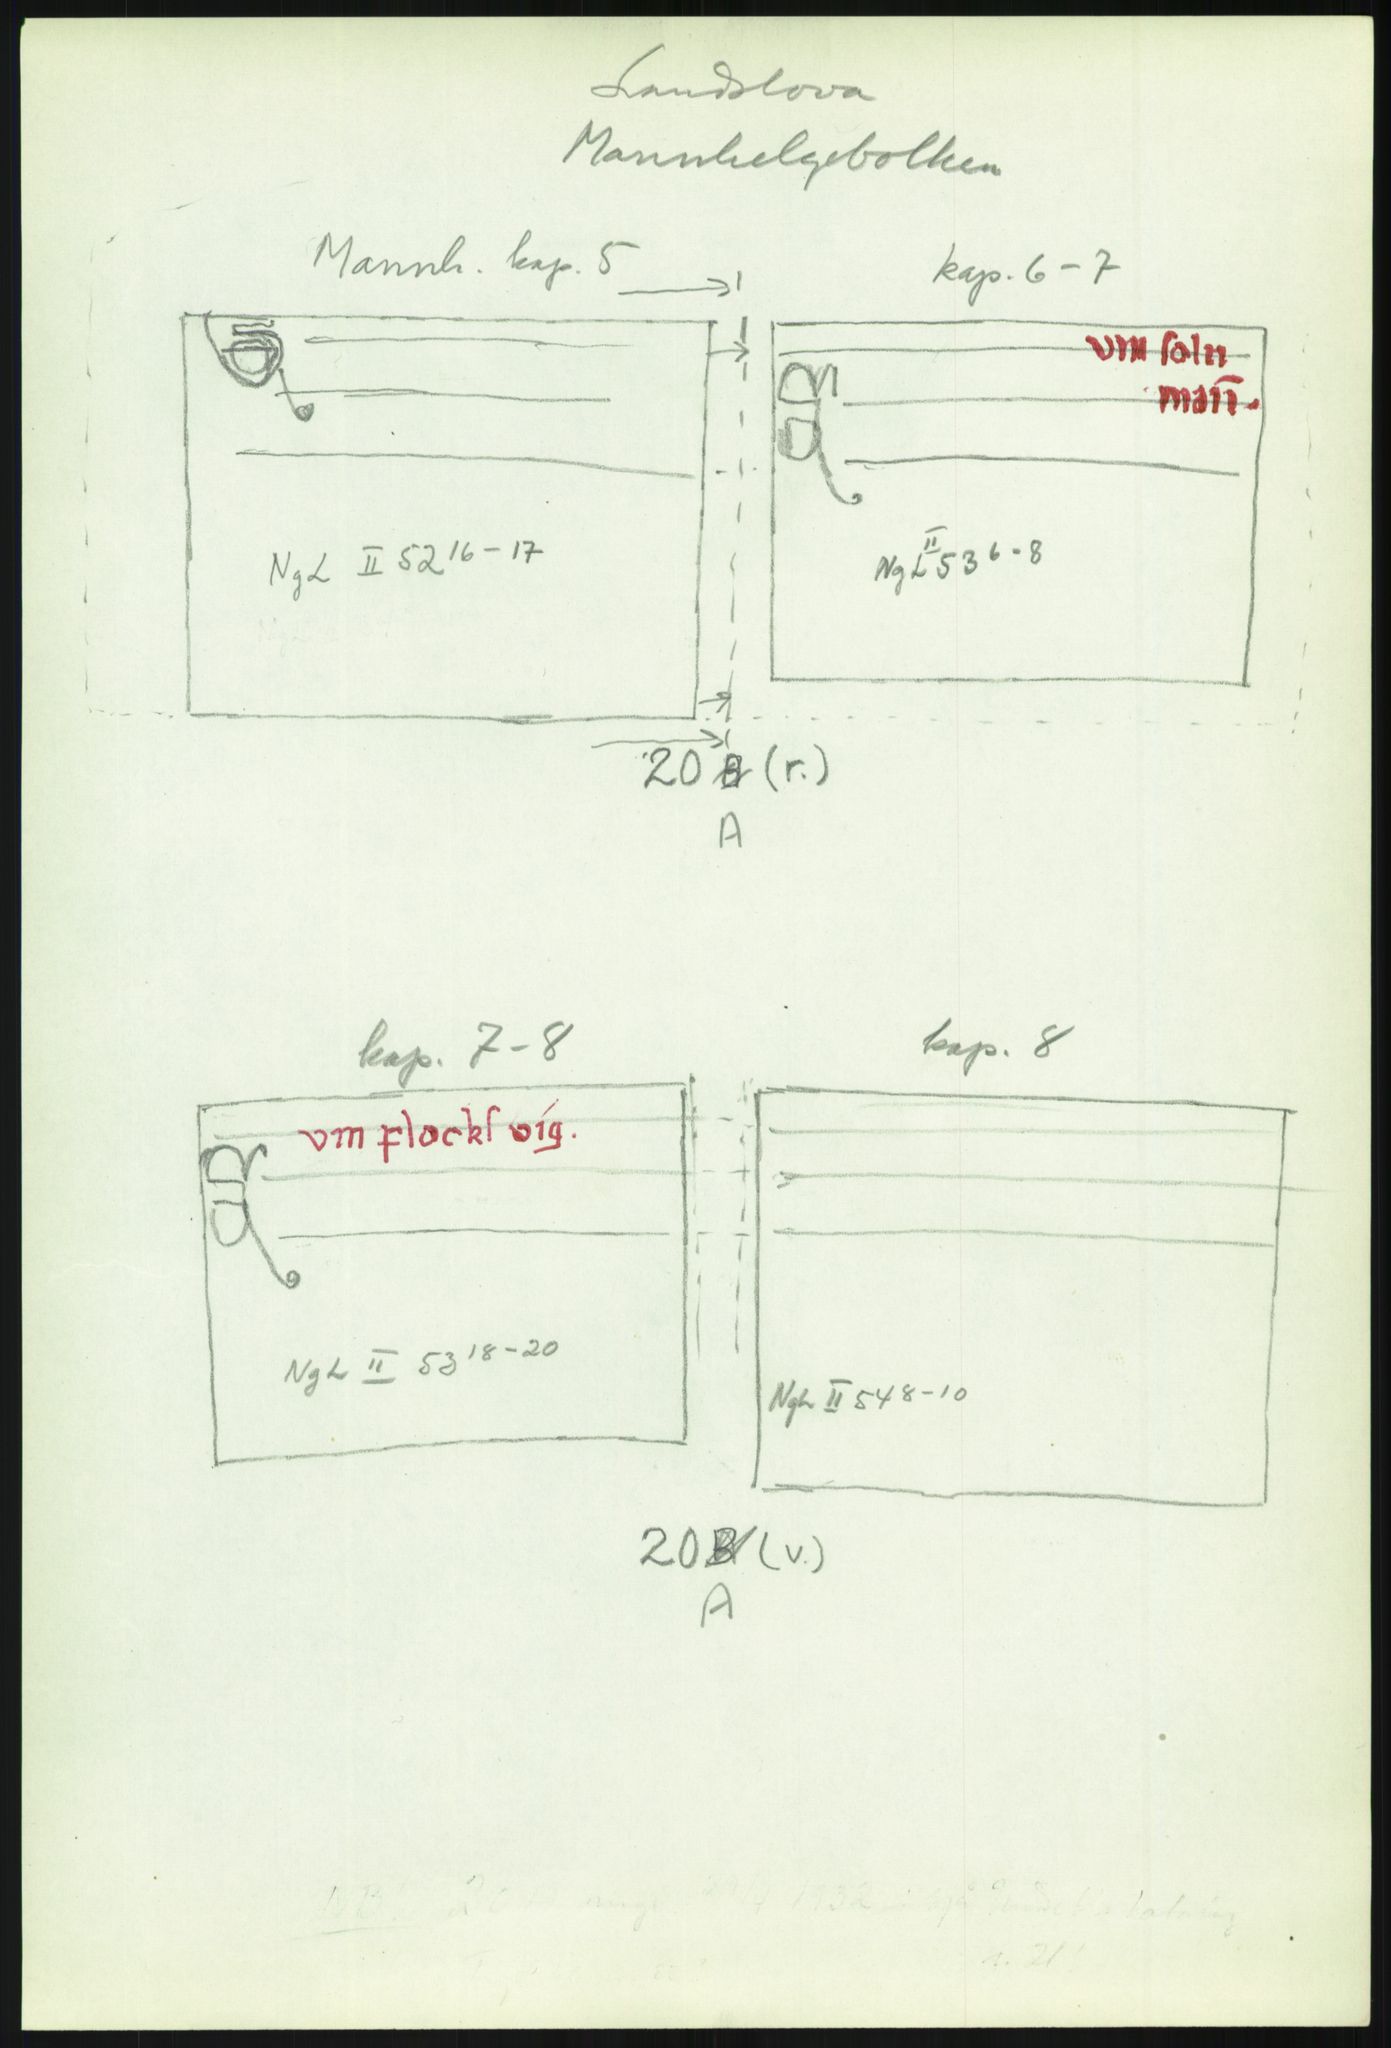 Landslova
Mannhelgebolken
Mannh. kap. 5
kap. 6-7
vm ſaln
man̄.
NgL II 52 16-17
NgL II 53 6-8
20 B (r.)
A
kap. 7-8
kap. 8
vm flockſ víg.
NgL II 53 18-20
NgL II 54 8-10
20 B (v.)
A